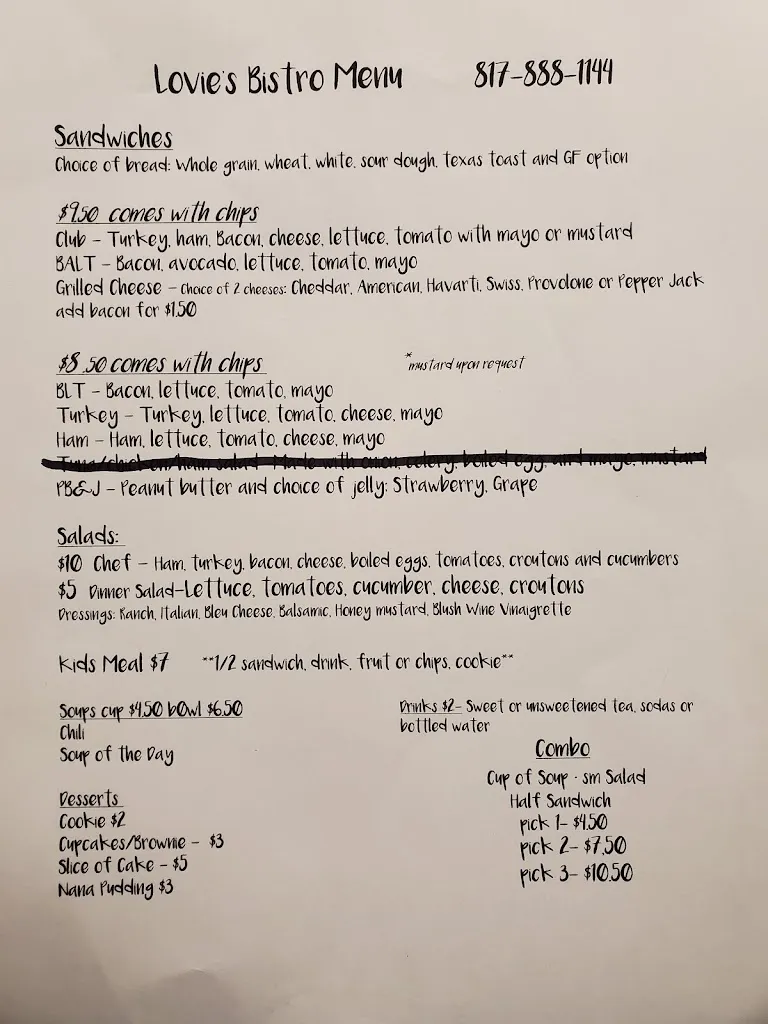 Lovie's Bistro Menu 817-888-1144
Sandwiches
Choice of bread: Whole grain, wheat, white, sour dough, texas toast and GF option
$9.50 comes with chips
Club – Turkey, ham, Bacon, cheese, lettuce, tomato with mayo or mustard
BALT – Bacon, avocado, lettuce, tomato, mayo
Grilled Cheese – choice of 2 cheeses: Cheddar, American, Havarti, Swiss, Provolone or Pepper Jack
add bacon for $1.50
$8.50 comes with chips *mustard upon request
BLT – Bacon, lettuce, tomato, mayo
Turkey – Turkey, lettuce, tomato, cheese, mayo
Ham – Ham, lettuce, tomato, cheese, mayo
Tuna/chicken/ham salad – Made with onion, celery, boiled egg, and mayo, mustard
PB&J – Peanut butter and choice of jelly: Strawberry, Grape
Salads:
$10 Chef – Ham, turkey, bacon, cheese, boiled eggs, tomatoes, croutons and cucumbers
$5 Dinner Salad–Lettuce, tomatoes, cucumber, cheese, croutons
Dressings: Ranch, Italian, Bleu Cheese, Balsamic, Honey mustard, Blush Wine Vinaigrette
Kids Meal $7 **1/2 sandwich, drink, fruit or chips, cookie**
Soups cup $4.50 bowl $6.50
Chili
Soup of the Day
Desserts
Cookie $2
Cupcakes/Brownie – $3
Slice of Cake – $5
Nana Pudding $3
Drinks $2– Sweet or unsweetened tea, sodas or
bottled water
Combo
Cup of Soup · sm Salad
Half Sandwich
pick 1– $4.50
pick 2– $7.50
pick 3– $10.50